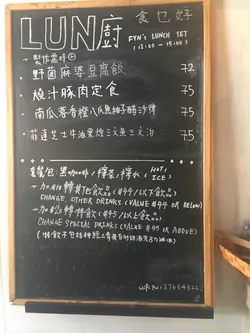 LUN廚 食乜好
FYN'S LUNCH SET
(12:00 - 15:00)
野菌麻婆豆腐飯 72
燒汁豚肉定食 75
南瓜 八爪魚柚子醋沙律 75
菲達芝士牛油果煙三文魚三文治 75
套餐包: 黑咖啡 / 檸茶 / 檸水 (HOT / ICE)
~ 加$10轉其他飲品 ($44 / 以下飲品)
CHANGE OTHER DRINKS (VALUE $44 OR BELOW)
~ 加$20轉特飲 ($45 / 以上飲品)
CHANGE SPECIAL DRINKS (VALUE $45 OR ABOVE)
Wifi PW: 37654321